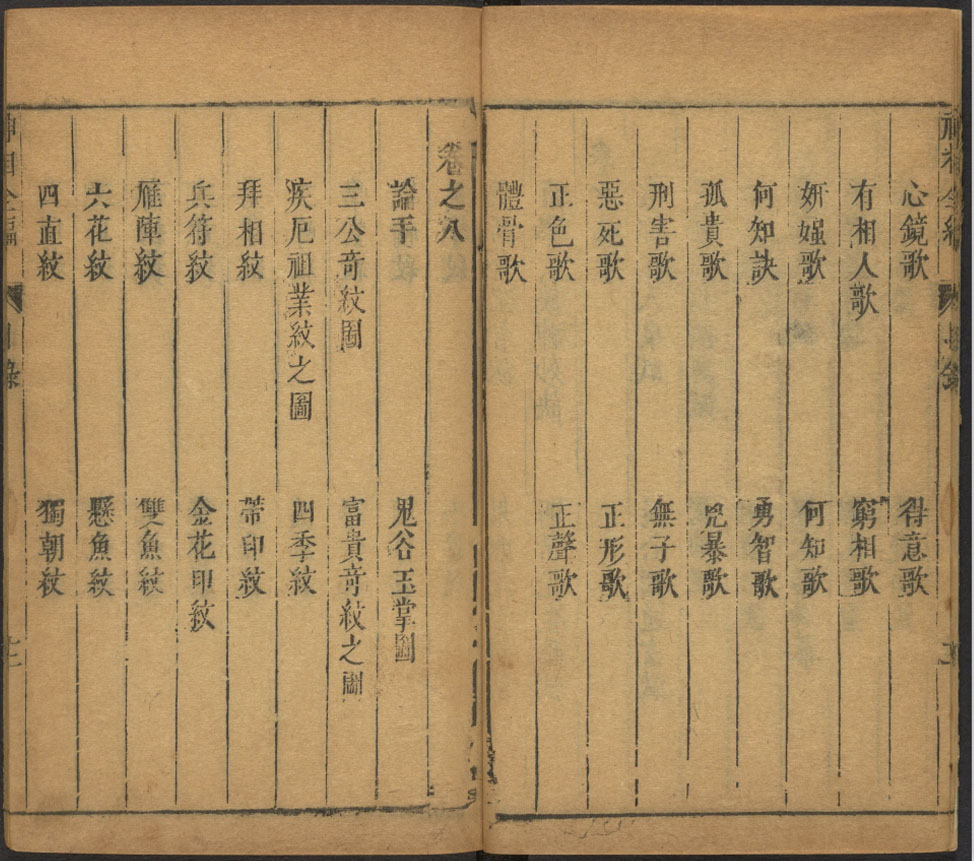 心鏡歌 得意歌
有相人歌 窮相歌
妍媸歌 何知歌
何知訣 勇智歌
孤貴歌 兇暴歌
刑害歌 無子歌
惡死歌 正形歌
正色歌 正聲歌
體骨歌
卷之八
論手 鬼谷玉掌圖
三公奇紋圖 富貴奇紋之圖
疾厄祖業紋之圖 四季紋
拜相紋 帶印紋
兵符紋 金花印紋
雁陣紋 雙魚紋
六花紋 懸魚紋
四直紋 獨朝紋